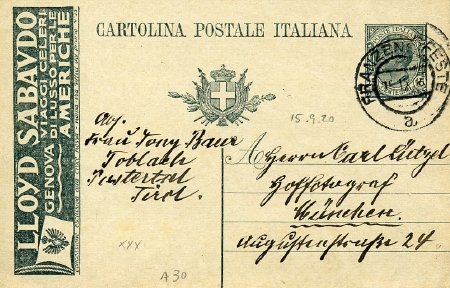 CARTOLINA POSTALE ITALIANA
LLOYD SABAVDO
VIAGGI CELERI
GENOVA DI LUSSO PER LE
AMERICHE
FRANZENSFESTE
a
15.9.20
Abs.
Frau Tony Baur
Toblach
Pustertal
Tirol.
A Herrn Carl Lützel
Hoffotograf
München.
Augustenstraße 24
xxx
A30